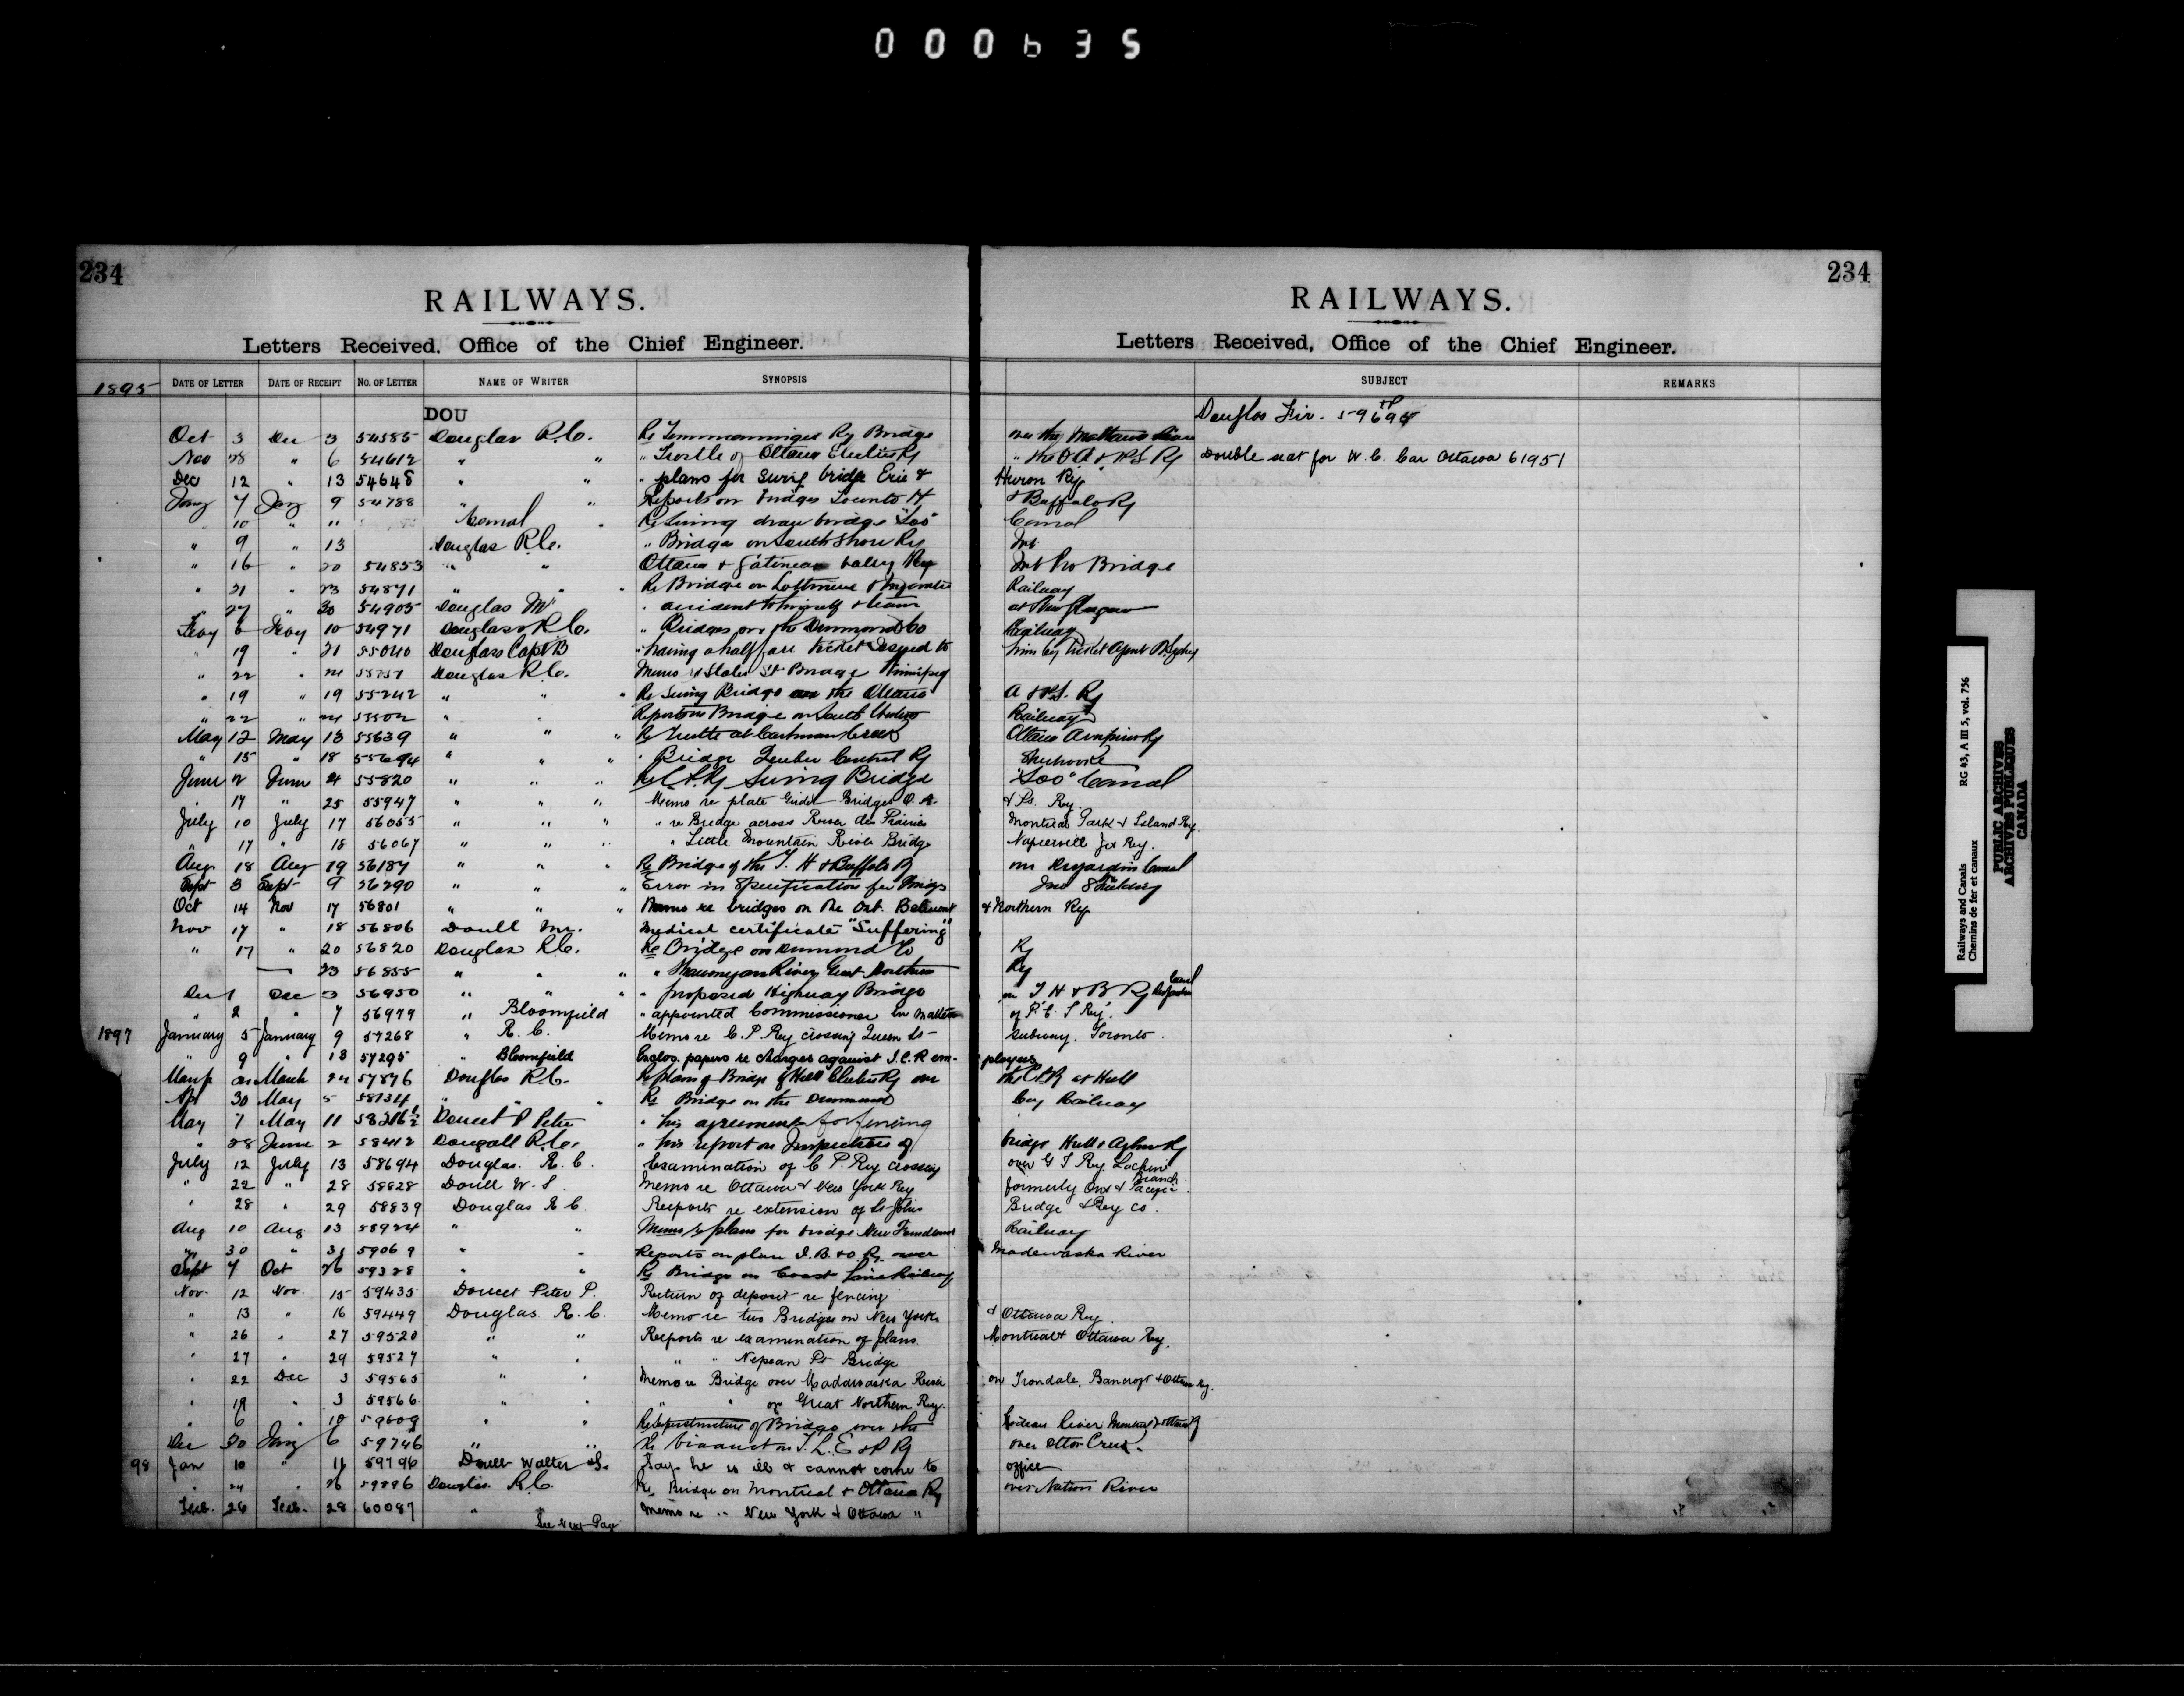 000635
234
RAILWAYS.
Letters Received, Office of the Chief Engineer.
234
RAILWAYS.
Letters Received, Office of the Chief Engineer.
1895 DATE OF LETTER DATE OF RECEIPT NO. OF LETTER NAME OF WRITER SYNOPSIS SUBJECT REMARKS
DOU Douglas Fir. 59694
Oct 3 Dec 3 54585 Douglas R.C. Re Ry Bridge over the
Nov 28 " 6 54612 " " " Trestle of Ottawa Electric Ry " the O A & P.S Ry Double seat for W. C. Car Ottawa 61951
Dec 12 " 13 54648 " " " plans for swing bridge Erie & Huron Ry
Jany 7 Jany 9 54788 " " Reports on bridges Toronto H & Buffalo Ry
" 10 " 11 Re Swing draw bridge "Soo" Canal
" 9 " 13 Douglas R.C. " Bridges on South Shore Ry
" 16 " 20 54853 " " Ottawa & Gatineau Valley Ry Int Pro Bridge
" 21 " 23 54871 " " Re Bridge on Railway
" 27 " 30 54905 Douglas Mr " accident to himself & team at New Glasgow
Feby 6 Feby 10 54971 Douglas R.C. " Bridges on the Drummond Co Railway
" 19 " 21 55040 Douglas Capt B " having a half fare ticket issued to him by Ticket Agent
" 22 " 24 Douglas R.C. Memo Bridge Winnipeg
" 19 " 19 55242 " " " Re Swing Bridge on the Ottawa A & P.S. Ry
" 22 " 24 " " Report on Bridge on South Railway
May 12 May 13 55639 " " " Re Trestle at Creek Ottawa Arnprior Ry
" 15 " 18 55694 " " " " Bridge Quebec Central Ry Sherbrooke
June 2 June 4 55820 " " " Re C.P.Ry Swing Bridge "Soo" Canal
" 17 " 25 55947 " " " Memo re plate Girder Bridges O. A. & P.S. Ry.
July 10 July 17 56055 " " " " re Bridge across River des Prairies Montreal Park & Island Ry.
" 17 " 18 56067 " " " " Little Mountain River Bridge Napierville Jct Ry.
Aug 18 Aug 19 56187 " " " Re Bridge of the T. H & Buffalo Ry over Desjardins Canal
Sept 3 Sept 9 56290 " " " Error in Specification for Bridge
Oct 14 Nov 17 56801 " " " Memo re bridges on the Ont. Belmont & Northern Ry
Nov 17 " 18 56806 Doull Mr. Medical certificate "Suffering"
" 17 " 20 56820 Douglas R.C. Re Bridge on Drummond Co Ry
— 23 56855 " " " " River Great Northern Ry
Dec 1 Dec 3 56950 " " " " proposed Highway Bridge on T H & B Ry Desjardin Canal
" 2 " 7 56979 " Bloomfield " appointed Commissioner in matters of P. E. I Ry.
1897 January 5 January 9 57268 " R. C. Memo re C. P Ry crossing Queen St subway, Toronto.
" 9 " 13 57295 " Bloomfield Enclos. papers re charges against I.C.R employees
March March 24 57876 Douglas R.C. Re plans of Bridge of Hull Electric Ry over the C.P.R at Hull
Apl 30 May 5 58134 " " " Re Bridge on the Drummond Coy Railway
May 7 May 11 58216½ Doucet P Peter " his agreement for fencing
" 28 June 2 58412 Dougall R.C. " his report on Inspection of bridge Hull & Aylmer Ry
July 12 July 13 58694 Douglas. R. C. Examination of C P. Ry crossing over G T Ry. Lachine Branch
" 22 " 28 58828 Doull W. S. Memo re Ottawa & New York Ry formerly Ont & Pacific.
" 28 " 29 58839 Douglas R C. Reports re extension of St Johns Bridge & Ry Co.
Aug 10 Aug 13 58924 " " Memo re plans for bridge New Railway
" 30 " 31 59069 " " Reports on plan I. B. & O. Ry. over Madawaska River
Sept 7 Oct 26 59328 " " Re Bridge on Coast Line Railway
Nov. 12 Nov. 15 59435 Doucet Peter P. Return of deposit re fencing
" 13 " 16 59449 Douglas R. C. Memo re two Bridges on New York & Ottawa Ry.
" 26 " 27 59520 " " Reports re examination of plans. Montreal & Ottawa Ry.
" 27 " 29 59527 " " " " Nepean Pt Bridge
" 22 Dec 3 59565 " " Memo re Bridge over Madawaska River on Irondale, Bancroft & Ottawa Ry.
" 19 " 3 59566 " " " " on Great Northern Ry.
" 6 " 10 59609 " " Re Superstructure of Bridge over the Rideau River Montreal & Ottawa Ry
Dec 30 Jany 6 59746 " " Re Viaduct on T. L. E & P Ry over Otter Creek.
98 Jan 10 " 11 59796 Doull Walter S. Says he is ill & cannot come to office
" 24 " 26 59896 Douglas R.C. Re Bridge on Montreal & Ottawa Ry over Nation River
Feb. 26 Feb. 28 60087 " Memo re " New York & Ottawa "
See Next Page
Railways and Canals RG 43, A III 3, vol. 756
Chemins de fer et canaux
PUBLIC ARCHIVES
ARCHIVES PUBLIQUES
CANADA